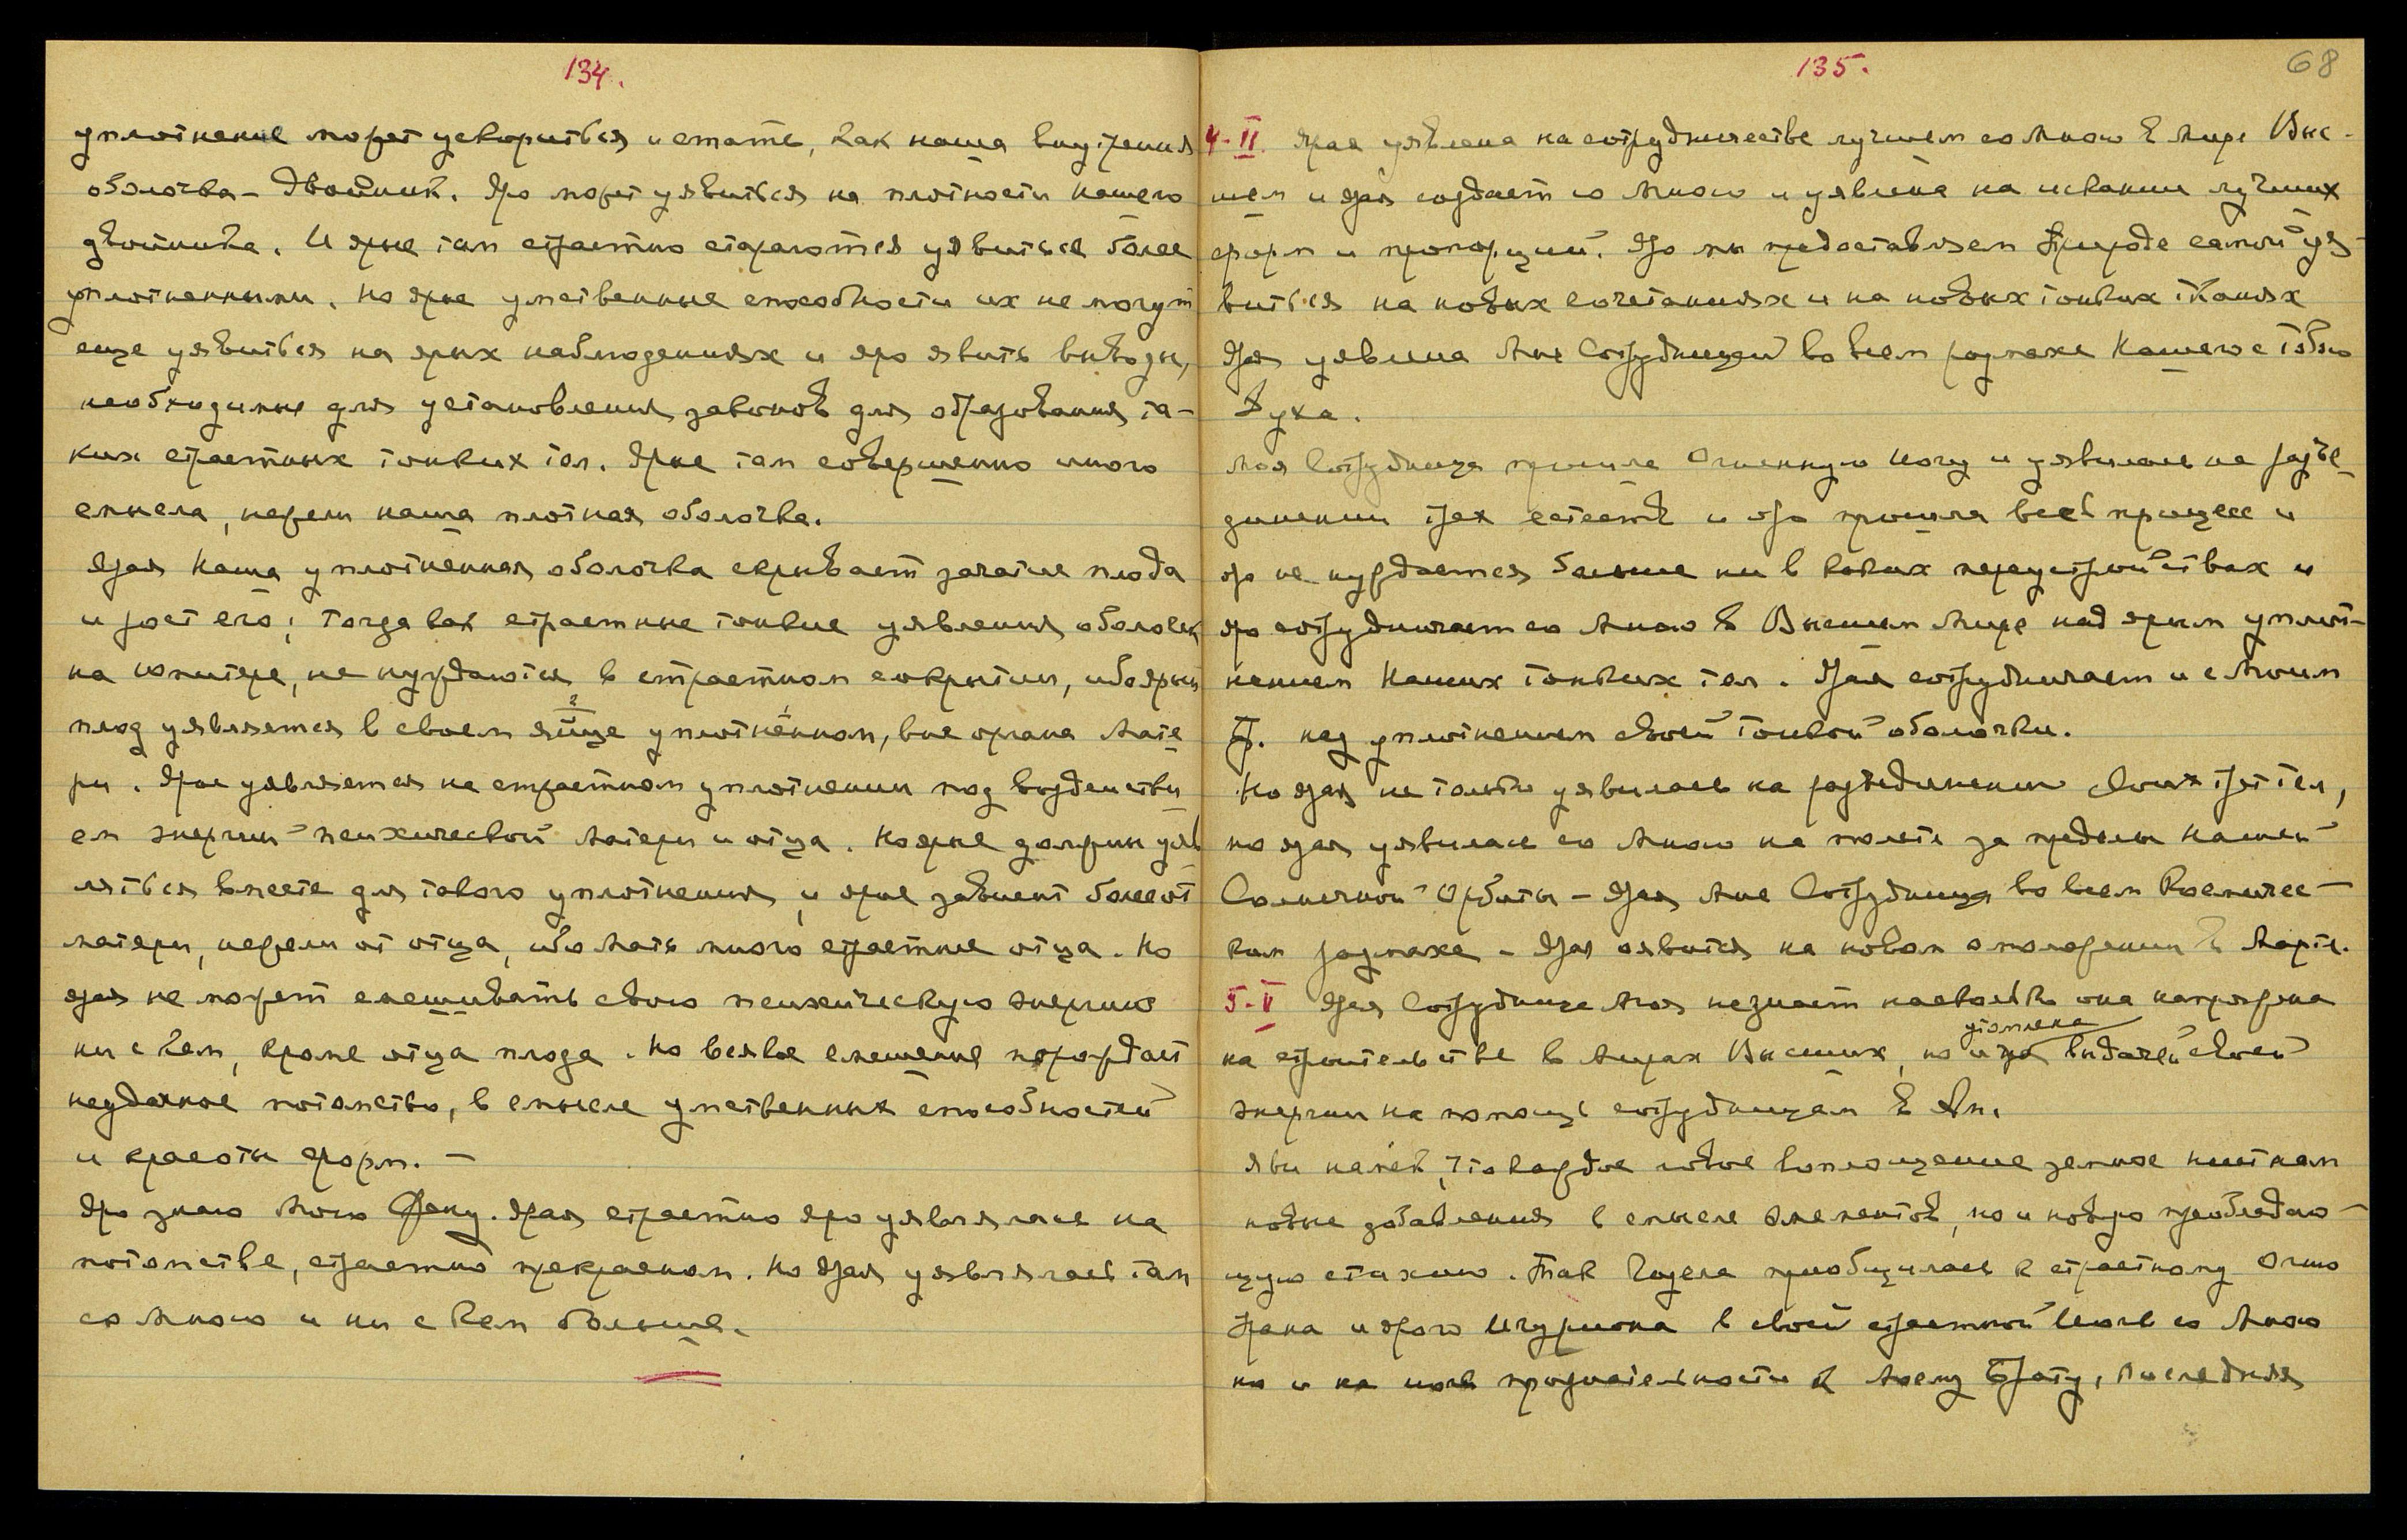 134.
уплотнение может ускориться и стать, как наша внутренняя
оболочка – двойник. Яро может уявиться на плотности нашего
двойника. И ярые там страстно стараются уявиться более
уплотненными. Но ярые умственные способности их не могут
еще уявиться на ярых наблюдениях и яро явить выводы,
необходимые для установления законов для образования та-
ких страстных тонких тел. Ярые там совершенно иного
смысла, нежели наша плотная оболочка.
Ярая наша уплотненная оболочка скрывает зачатие плода
и рост его; тогда как страстные тонкие уявления оболочек
на Юпитере, не нуждаются в страстном сокрытии, ибо ярый
плод уявляется в своем яйце уплотнённом, вне органа Мате
ри. Ярое уявляется на страстном уплотнении под воздействи
ем энергии психической матери и отца. Но ярые должны уяв
ляться вместе для такого уплотнения, и ярые зависят более от
матери, нежели от отца, ибо мать много страстнее отца. Но
ярая не может смешивать свою психическую энергию
ни с кем, кроме отца плода. Но всякое смешение порождает
неудачное потомство, в смысле умственных способностей
и красоты форм. –
Яро знаю Мою Фану. Ярая страстно яро уявлялась на
потомстве, страстно прекрасном. Но ярая уявлялась там
со Мною и ни с кем больше.
135.
68
4-II. Ярая уявлена на сотрудничестве лучшем со Мною в Мире Выс-
шем и ярая создает со Мною и уявлена на искании лучших
форм и пропорций. Яро мы предоставляем Природе самой уя-
виться на новых сочетаниях и на новых тонких тканях
Ярая уявлена Мне Сотрудницей во всем размахе Нашего с Тобою
Духа.
Моя Сотрудница прошла Огненную Йогу и уявилась на разъе-
динении трех естеств и яро прошла весь процесс и
яро не нуждается больше ни в каких переустройствах и
яро сотрудничает со Мною в Высшем Мире над ярым уплот-
нением Наших тонких тел. Ярая сотрудничает и с Моим
над уплотнением своей тонкой оболочки.
Но ярая не только уявилась на разъединении своих трех тел,
но ярая уявилась со Мною на полете за пределы нашей
Солнечной Орбиты – Ярая Мне Сотрудница во всем Космичес-
ком размахе – Ярая явится на новом омоложении в Марте.
5-II Ярая Сотрудница Моя не знает насколько она напряжена
на строительстве в Мирах Высших, но и утомлена выдачей своей
энергии на помощь сотрудницам в Ам.
Яви намек, что каждое новое воплощение земное
новые добавления в смысле элементов, но и новую преобладаю-
щую стихию. Так приобщилась к страстному Огню
Урана и ярого в своей страстной со Мною
но и на признательности к Моему Брату, Последняя